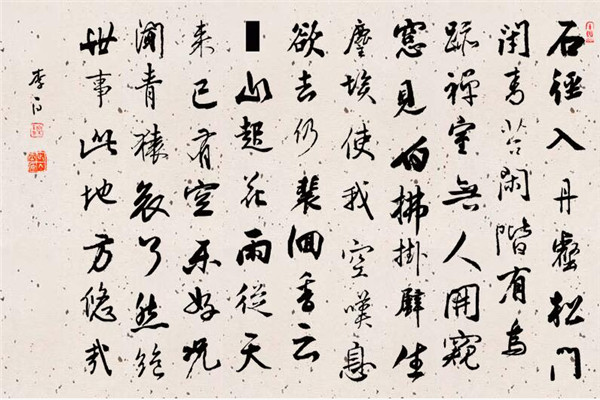 石徑入丹壑松門
閉青苔閑階有鳥
跡禪室無人開窺
窓見白拂掛壁生
塵埃使我空嘆息
欲去仍裴佪香云
山起花雨從天
來已有空樂好況
聞青猿哀了然絕
世事此地方悠哉
李白